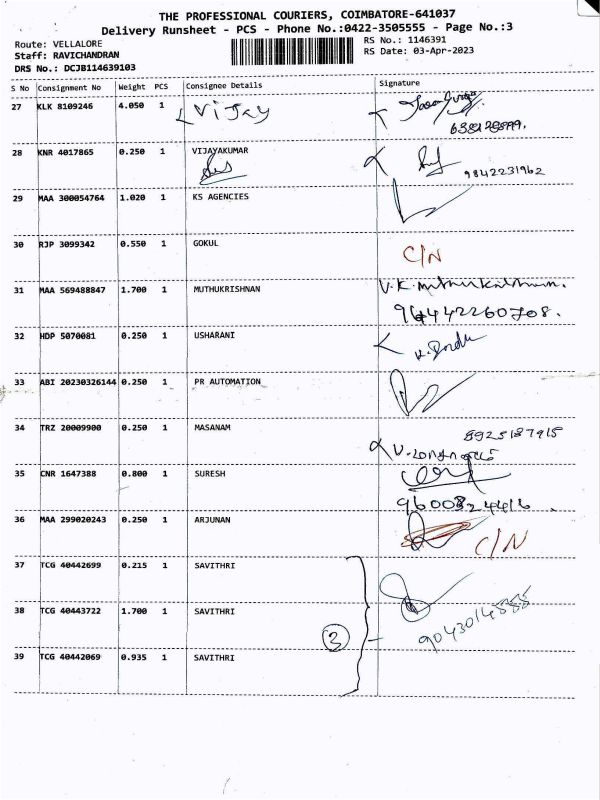 THE PROFESSIONAL COURIERS, COIMBATORE-641037
Delivery Runsheet - PCS - Phone No.:0422-3505555 - Page No.:3
Route: VELLALORE RS No.: 1146391
Staff: RAVICHANDRAN RS Date: 03-Apr-2023
DRS No.: DCJB114639103
S No Consignment No Weight PCS Consignee Details Signature
27 KLK 8109246 4.050 1 Vijay
28 KNR 4017865 0.250 1 VIJAYAKUMAR
9842231962
29 MAA 300054764 1.020 1 KS AGENCIES
30 RJP 3099342 0.550 1 GOKUL
C/N
31 MAA 569488847 1.700 1 MUTHUKRISHNAN
32 HDP 5070081 0.250 1 USHARANI
33 ABI 20230326144 0.250 1 PR AUTOMATION
34 TRZ 20009900 0.250 1 MASANAM
8925187915
35 CNR 1647388 0.800 1 SURESH
9600824416
36 MAA 299020243 0.250 1 ARJUNAN
C/N
37 TCG 40442699 0.215 1 SAVITHRI
38 TCG 40443722 1.700 1 SAVITHRI
3
39 TCG 40442069 0.935 1 SAVITHRI